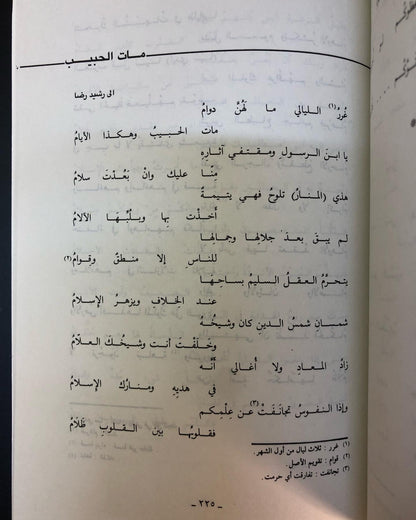 مات الحبيب
الى رشيد رضا
غُررُ (١) الليالي ما لهُنَّ دوامُ
مات الحبيبُ وهكذا الأيامُ
يا ابنَ الرسولِ ومقتفي آثارِهِ
مِنَّا عليك وانْ بَعُدْتَ سلامُ
هذي (المنارُ) تلوحُ فهي يتيمةٌ
أخذتْ بها وبلُبِّها الآلامُ
لم يبقَ بعدَ جلالِها وجمالِها
للناسِ إلا منطقٌ وقوامُ (٢)
يتحرَّمُ العقلُ السليمُ بساحِها
عند الخلافِ ويزهرُ الإسلامُ
شمسانِ شمسُ الدينِ كان وشيخُهُ
وخلَفْتَ أنت وشيخُكَ العلّامُ
زادُ المعادِ ولا أُغالي أنَّه
في هديِهِ ومنارُكَ الإسلامُ
وإذا النفوسُ تجانفتْ (٣) عن عِلمِكم
فقلوبُها بين القلوبِ ظلامُ
(١) غرر : ثلاث ليال من أول الشهر.
(٢) قوام : تقويم الأصل.
(٣) تجانفت : تفارقت أي حرمت.
- ٢٢٥ -